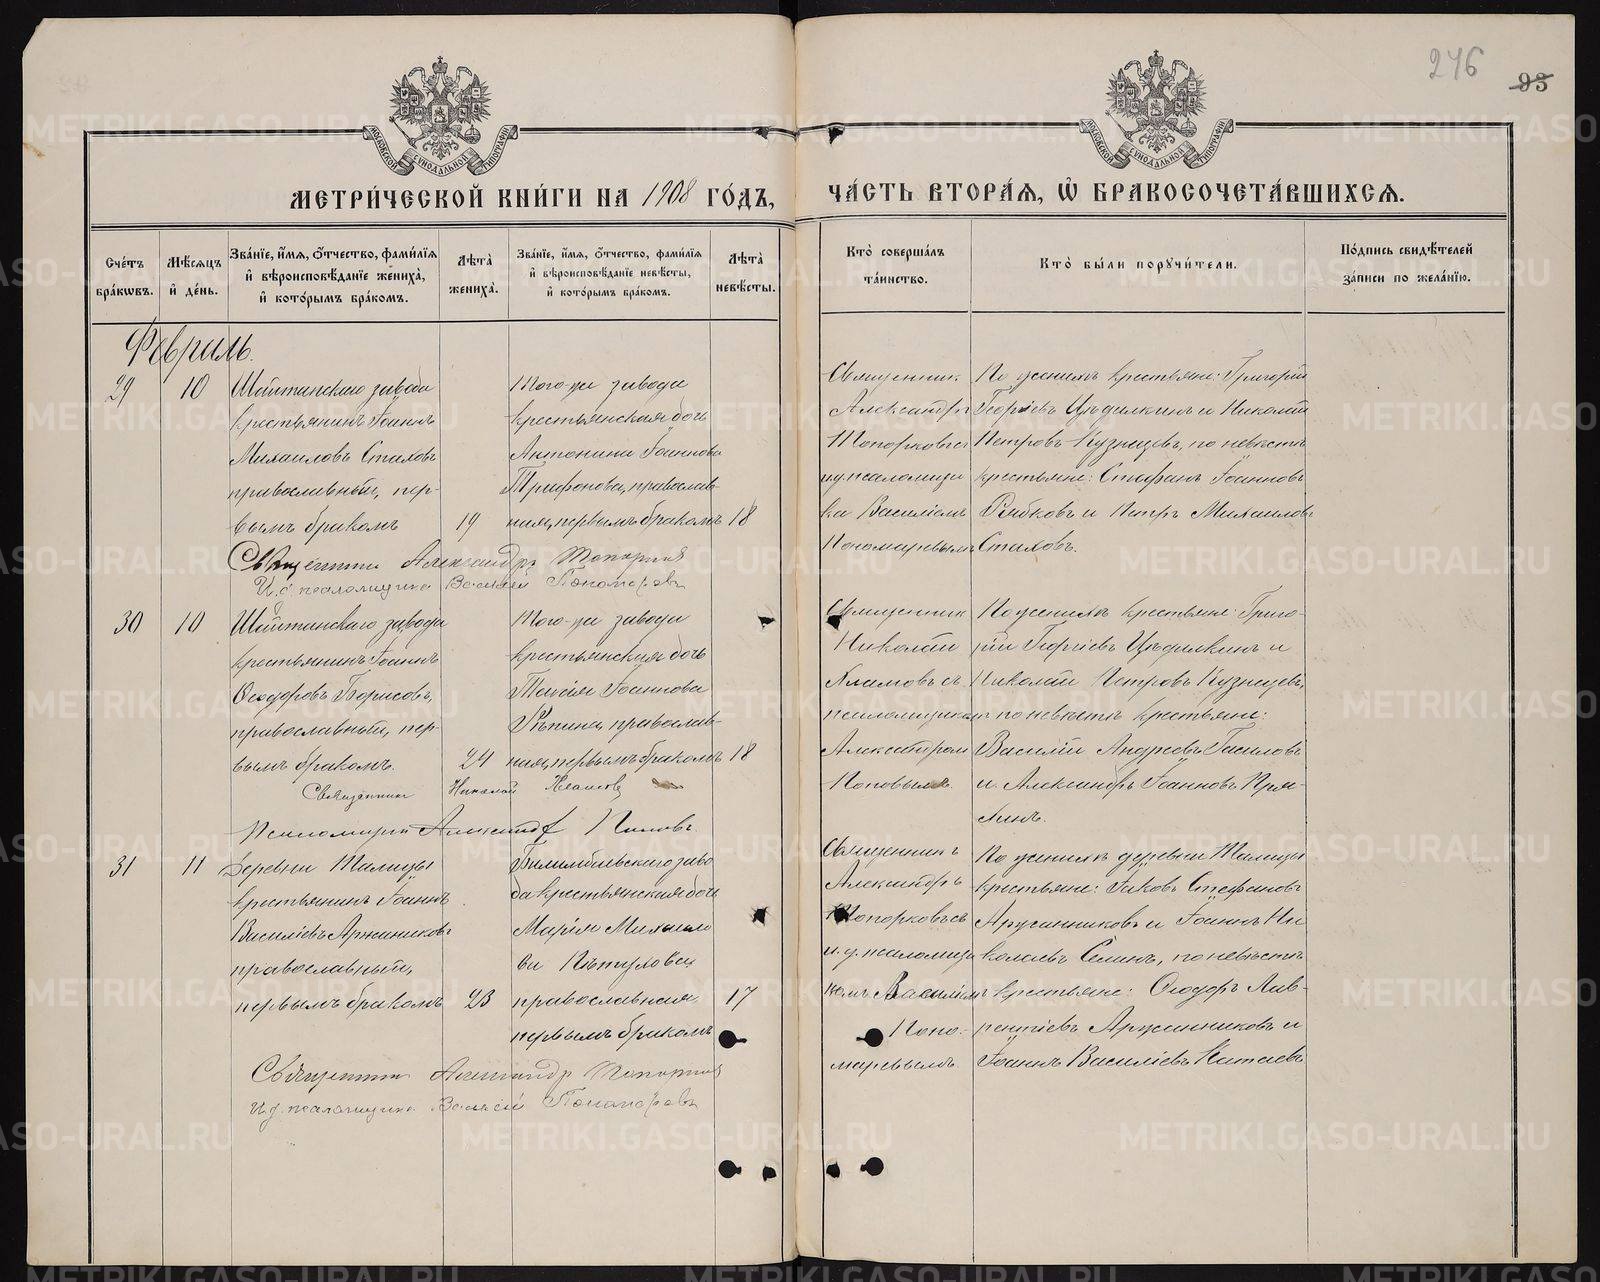 276
93
МОСКОВСКОЙ СѴНОДАЛЬНОЙ ТИПОГРАФІИ
МОСКОВСКОЙ СѴНОДАЛЬНОЙ ТИПОГРАФІИ
МЕТРИ́ЧЕСКОЙ КНИ́ГИ НА 1908 ГО́ДЪ,
ЧА́СТЬ ВТОРА́Я, Ѡ БРАКОСОЧЕТА́ВШИХСЯ.
Сче́тъ бра́кѡвъ.
Мѣ́сяцъ и҆ де́нь.
Зва́нїе, и҆́мя, ѻ҆́тчество, фами́лїя и҆ вѣроисповѣ́данїе жениха̀, и҆ кото́рымъ бра́комъ.
Лѣ́та̀ жениха̀.
Зва́нїе, и҆́мя, ѻ҆́тчество, фами́лїя и҆ вѣроисповѣ́данїе невѣ́сты, и҆ кото́рымъ бра́комъ.
Лѣ́та̀ невѣ́сты.
Кто̀ соверша́лъ та́инство.
Кто̀ бы́ли порꙋчи́тели.
По́дпись свидѣ́телей за́писи по жела́нїю.
Февраль.
29
10
Шайтанскаго завода
крестьянинъ Іоаннъ
Михаиловъ Стаховъ
православный, пер-
вымъ бракомъ
19
Того-же завода
крестьянская дочь
Антонина Іоаннова
Трифонова, православ-
ная, первымъ бракомъ
18
Священникъ
Александръ
Топорковъ съ
и. д. псаломщи
ка Василіемъ
Пономаревымъ
По женихѣ крестьяне: Григорій
Георгіевъ Цѣдилкинъ и Николай
Петровъ Кузнецовъ, по невѣстѣ
крестьяне: Стефанъ Іоанновъ
Рыбковъ и Петръ Михаиловъ
Стаховъ.
Священникъ Александръ Топорковъ
И. д. псаломщика Василій Пономаревъ
30
10
Шайтанскаго завода
крестьянинъ Іоаннъ
Ѳеодоровъ Борисовъ,
православный, пер-
вымъ бракомъ.
24
Того-же завода
крестьянская дочь
Таисія Іоаннова
Рѣпина, православ-
ная, первымъ бракомъ
18
Священникъ
Николай
съ
псаломщикомъ
Александромъ
Поповымъ.
По женихѣ крестьяне: Григо-
рій Георгіевъ Цѣдилкинъ и
Николай Петровъ Кузнецовъ,
по невѣстѣ крестьяне:
Василій Андреевъ Гасиловъ
и Александръ Іоанновъ Пря-
хинъ.
Священникъ Николай
Псаломщикъ Александръ Поповъ
31
11
Деревни Талицы
крестьянинъ Іоаннъ
Василіевъ Аржанниковъ
православный,
первымъ бракомъ
23
Билимбаевскаго заво
да крестьянская дочь
Марія Михаило
ва Пѣтухова
православная
первымъ бракомъ
17
Священникъ
Александръ
Топорковъ съ
и. д. псаломщи
комъ Василіемъ
Поно-
маревымъ.
По женихѣ деревни Талицы
крестьяне: Іаковъ Стефановъ
Аржанниковъ и Іоаннъ Ни
колаевъ Селинъ, по невѣстѣ
крестьяне: Ѳеодоръ Лав-
рентіевъ Аржанниковъ и
Іоаннъ Василіевъ Катаевъ
Священникъ Александръ Топорковъ
И. д. псаломщика Василій Пономаревъ
METRIKI.GASO-URAL.RU